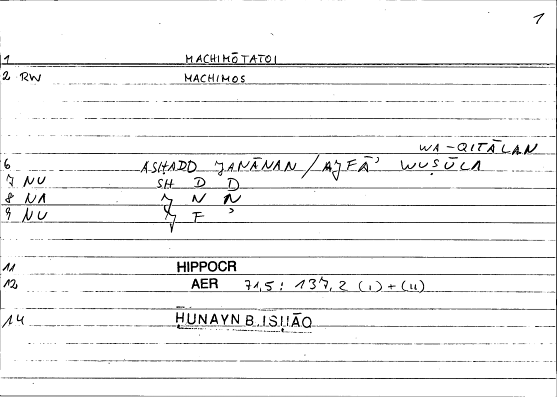 1
1 MACHIMŌTATOI
2 RW MACHIMOS
WA-QITĀLAN
6 ASHADD JANĀNAN / AJFĀ' WUṢŪLA
7 NU SH D D
8 NA J N N
9 NU J F '
11 HIPPOCR
12 AER 71,5 : 137,2 (i)+(ii)
14 HUNAYN B. ISḤĀQ